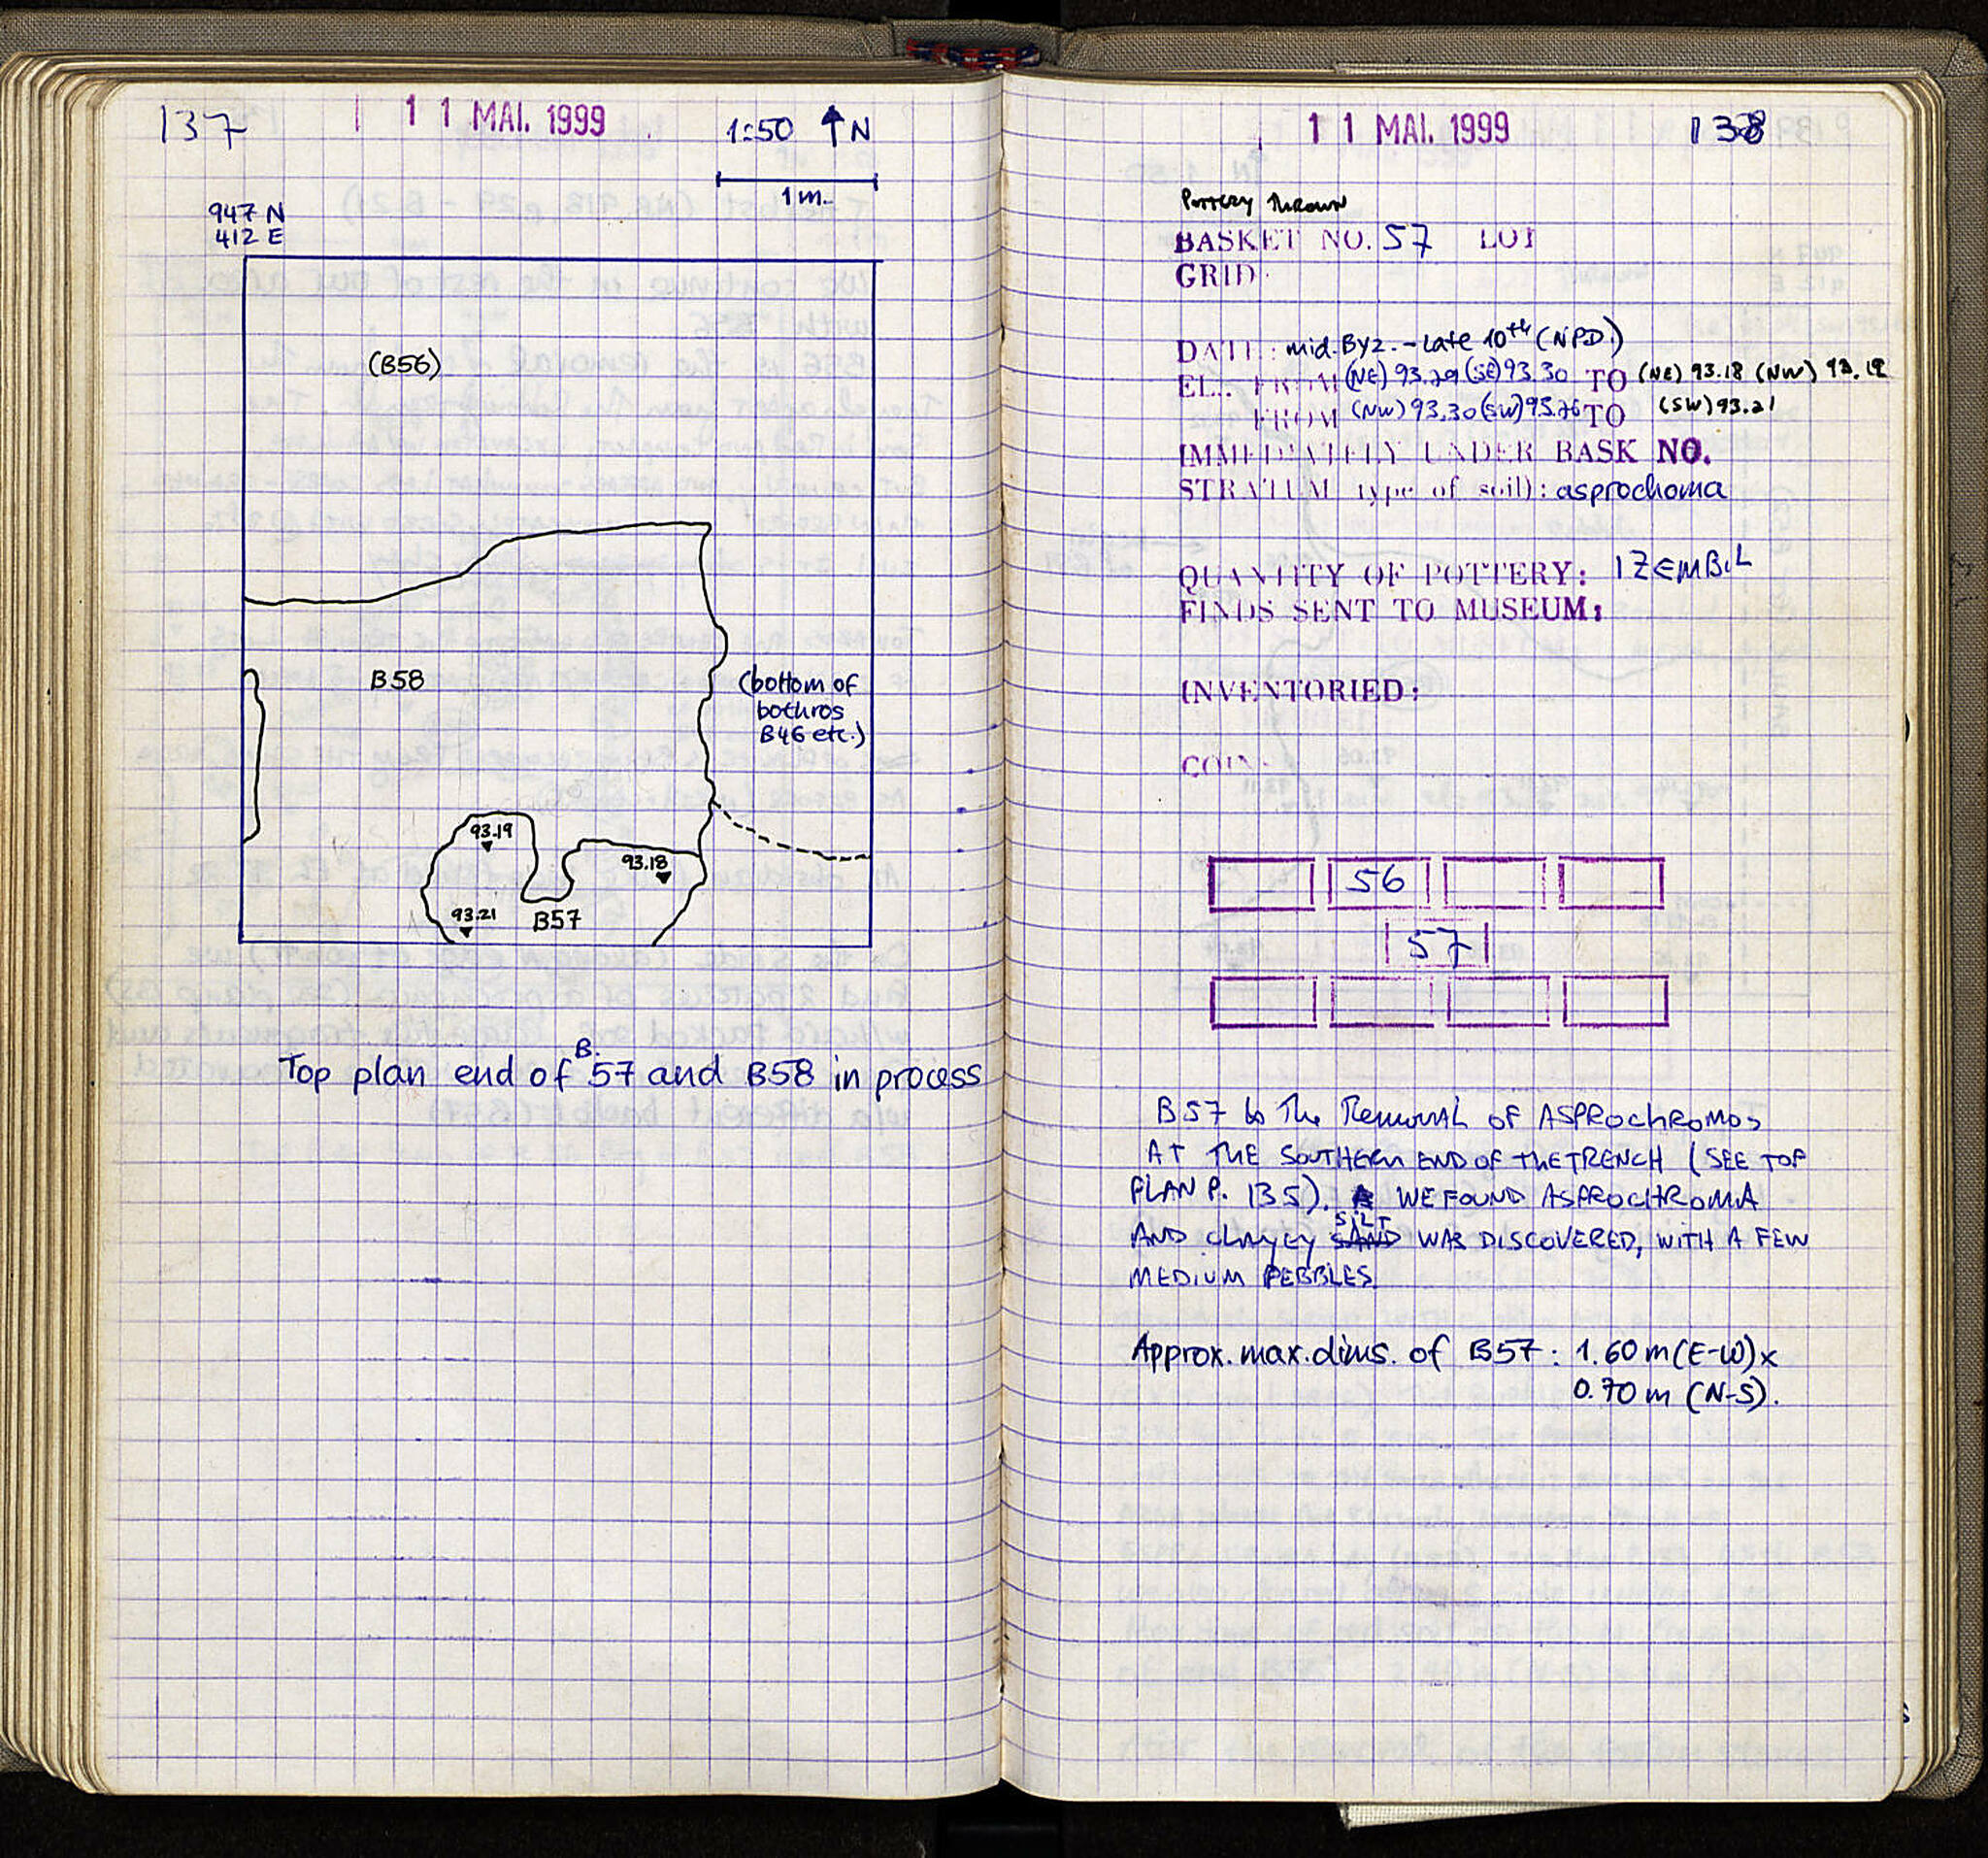 137
11 MAI. 1999
1:50 ↑N
1m.
947 N
412 E
(B56)
B58
(bottom of
bothros
B46 etc.)
93.19
93.18
93.21
B57
Top plan end of B.57 and B58 in process
11 MAI. 1999
138
Pottery thrown
BASKET NO. 57 LOT
GRID:
DATE: mid. Byz. - Late 10th (NPD.)
EL.. FROM (NE) 93.29 (SE) 93.30 TO (NE) 93.18 (NW) 93.19
FROM (NW) 93.30 (SW) 93.26 TO (SW) 93.21
IMMEDIATELY UNDER BASK NO.
STRATUM type of soil): asprochoma
QUANTITY OF POTTERY: 1 ZEMBIL
FINDS SENT TO MUSEUM:
INVENTORIED:
COIN:
56
57
B57 is The Removal of ASPROCHROMOS
AT THE SOUTHERN END OF THE TRENCH (SEE TOP
PLAN P. 135). WE FOUND ASPROCHROMA
AND CLAYEY SAND SILT WAS DISCOVERED, WITH A FEW
MEDIUM PEBBLES.
Approx. max. dims. of B57: 1.60 m (E-W) x
0.70 m (N-S).